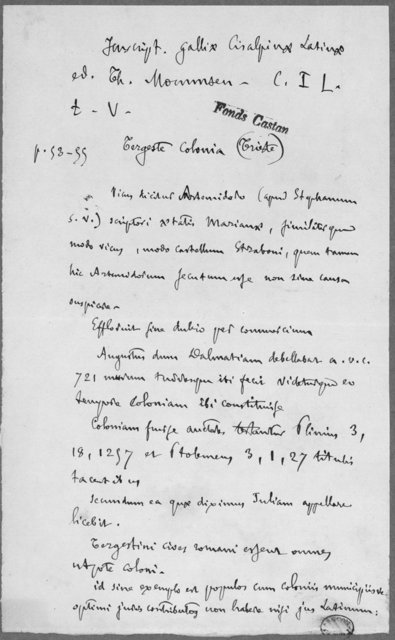 Inscript. galliæ Cisalpinæ Latinæ
ed. Th. Mommsen - C. I L.
t - V -
Fonds Castan
p. 53-55 Tergeste Colonia (Trieste)
Vicus dicitur Artemidoro (apud Stephanum
s. v.) scriptori ætatis Marianæ, similiterque
modo vicus, modo castellum Straboni, quem tamen
hic Artemidorum secutum esse non sine causa
suspicere -
Effloruit sine dubio per commercium
Augustus dum Dalmatiam debellabat a. v. c.
721 murum turresque ibi fecit videturque eo
tempore coloniam ibi constituisse
Coloniam fuisse auctores testantur Plinius 3,
18, 1257 et Ptolemeus 3, 1, 27 titulis
tacentibus
secundum ea quæ diximus Juliam appellare
licebit.
Tergestini cives romani essent omnes
utpote coloni -
id sine exemplo est populos cum coloniis municipiisve
optimi juris contributos non habere nisi jus Latinum :